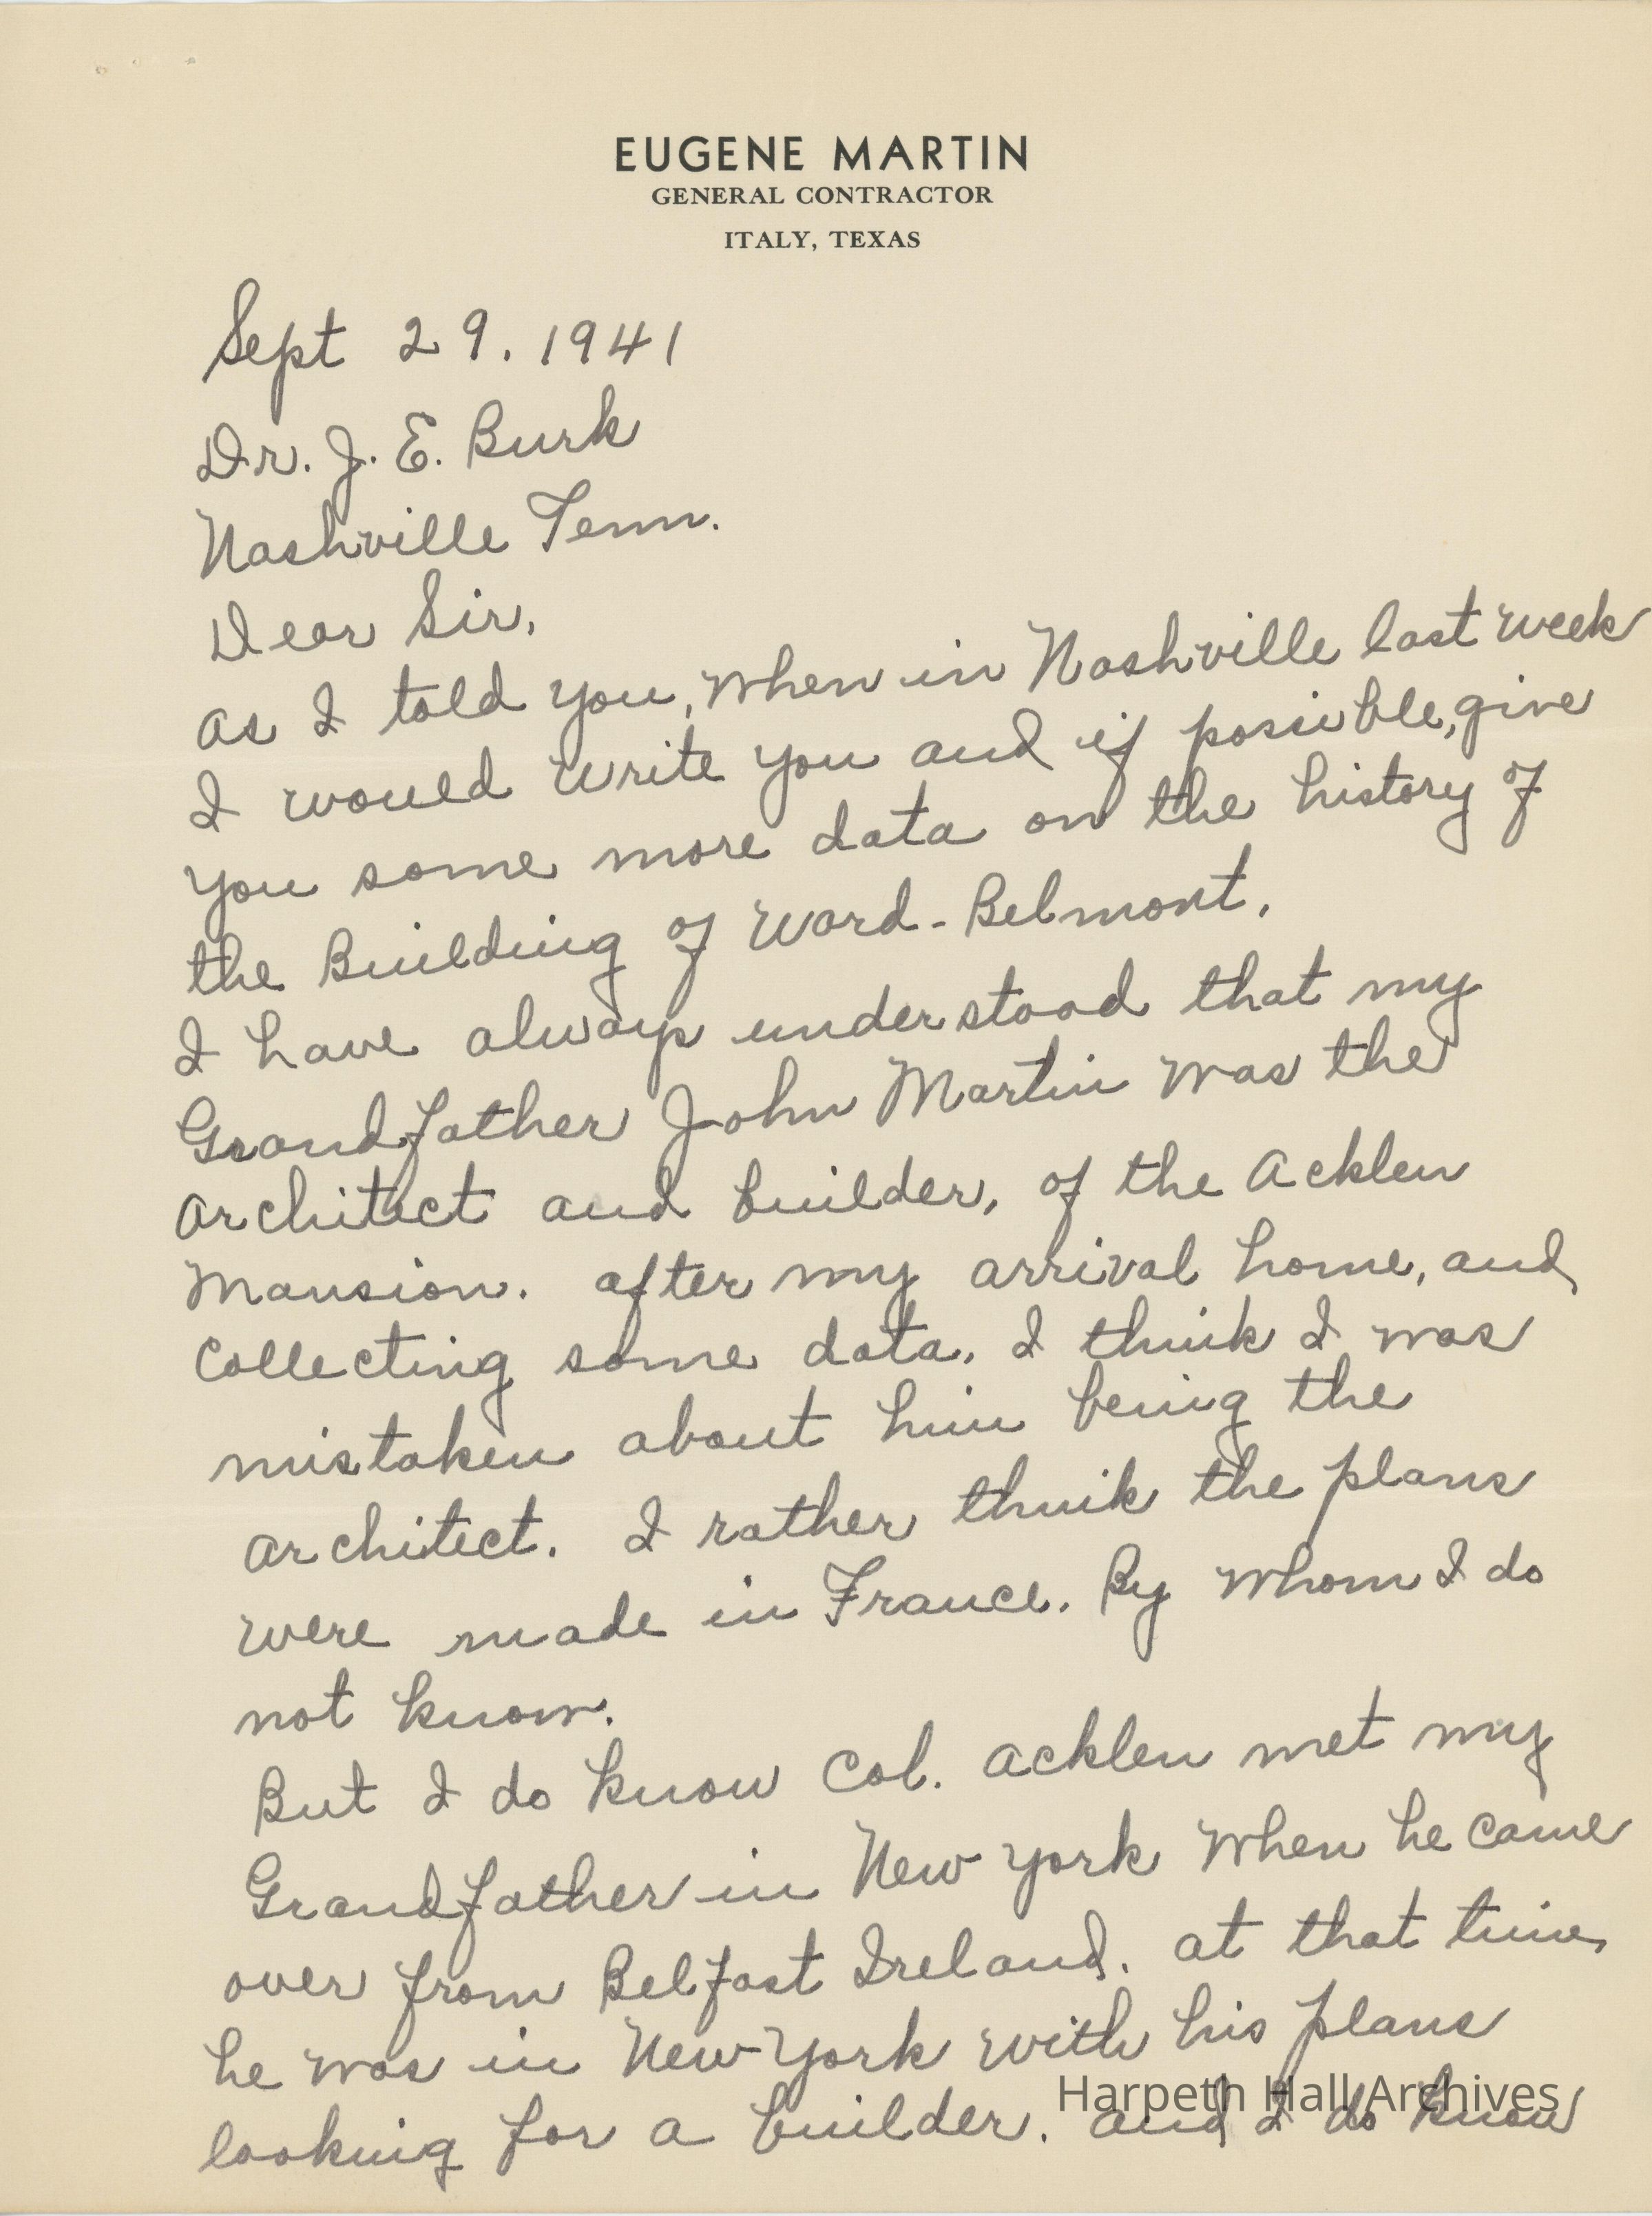 EUGENE MARTIN
GENERAL CONTRACTOR
ITALY, TEXAS
Sept 29. 1941
Dr. J. E. Burk
Nashville Tenn.
Dear Sir,
As I told you, when in Nashville last week
I would write you and if possible, give
you some more data on the history of
the Building of Ward-Belmont.
I have always understood that my
Grandfather John Martin was the
Architect and builder, of the Acklen
Mansion. After my arrival home, and
Collecting some data, I think I was
mistaken about him being the
Architect. I rather think the plans
were made in France. By Whom I do
not know.
But I do know Col. Acklen met my
Grandfather in New York when he came
over from Belfast Ireland. At that time,
he was in New York with his plans
looking for a builder. And I do know
Harpeth Hall Archives